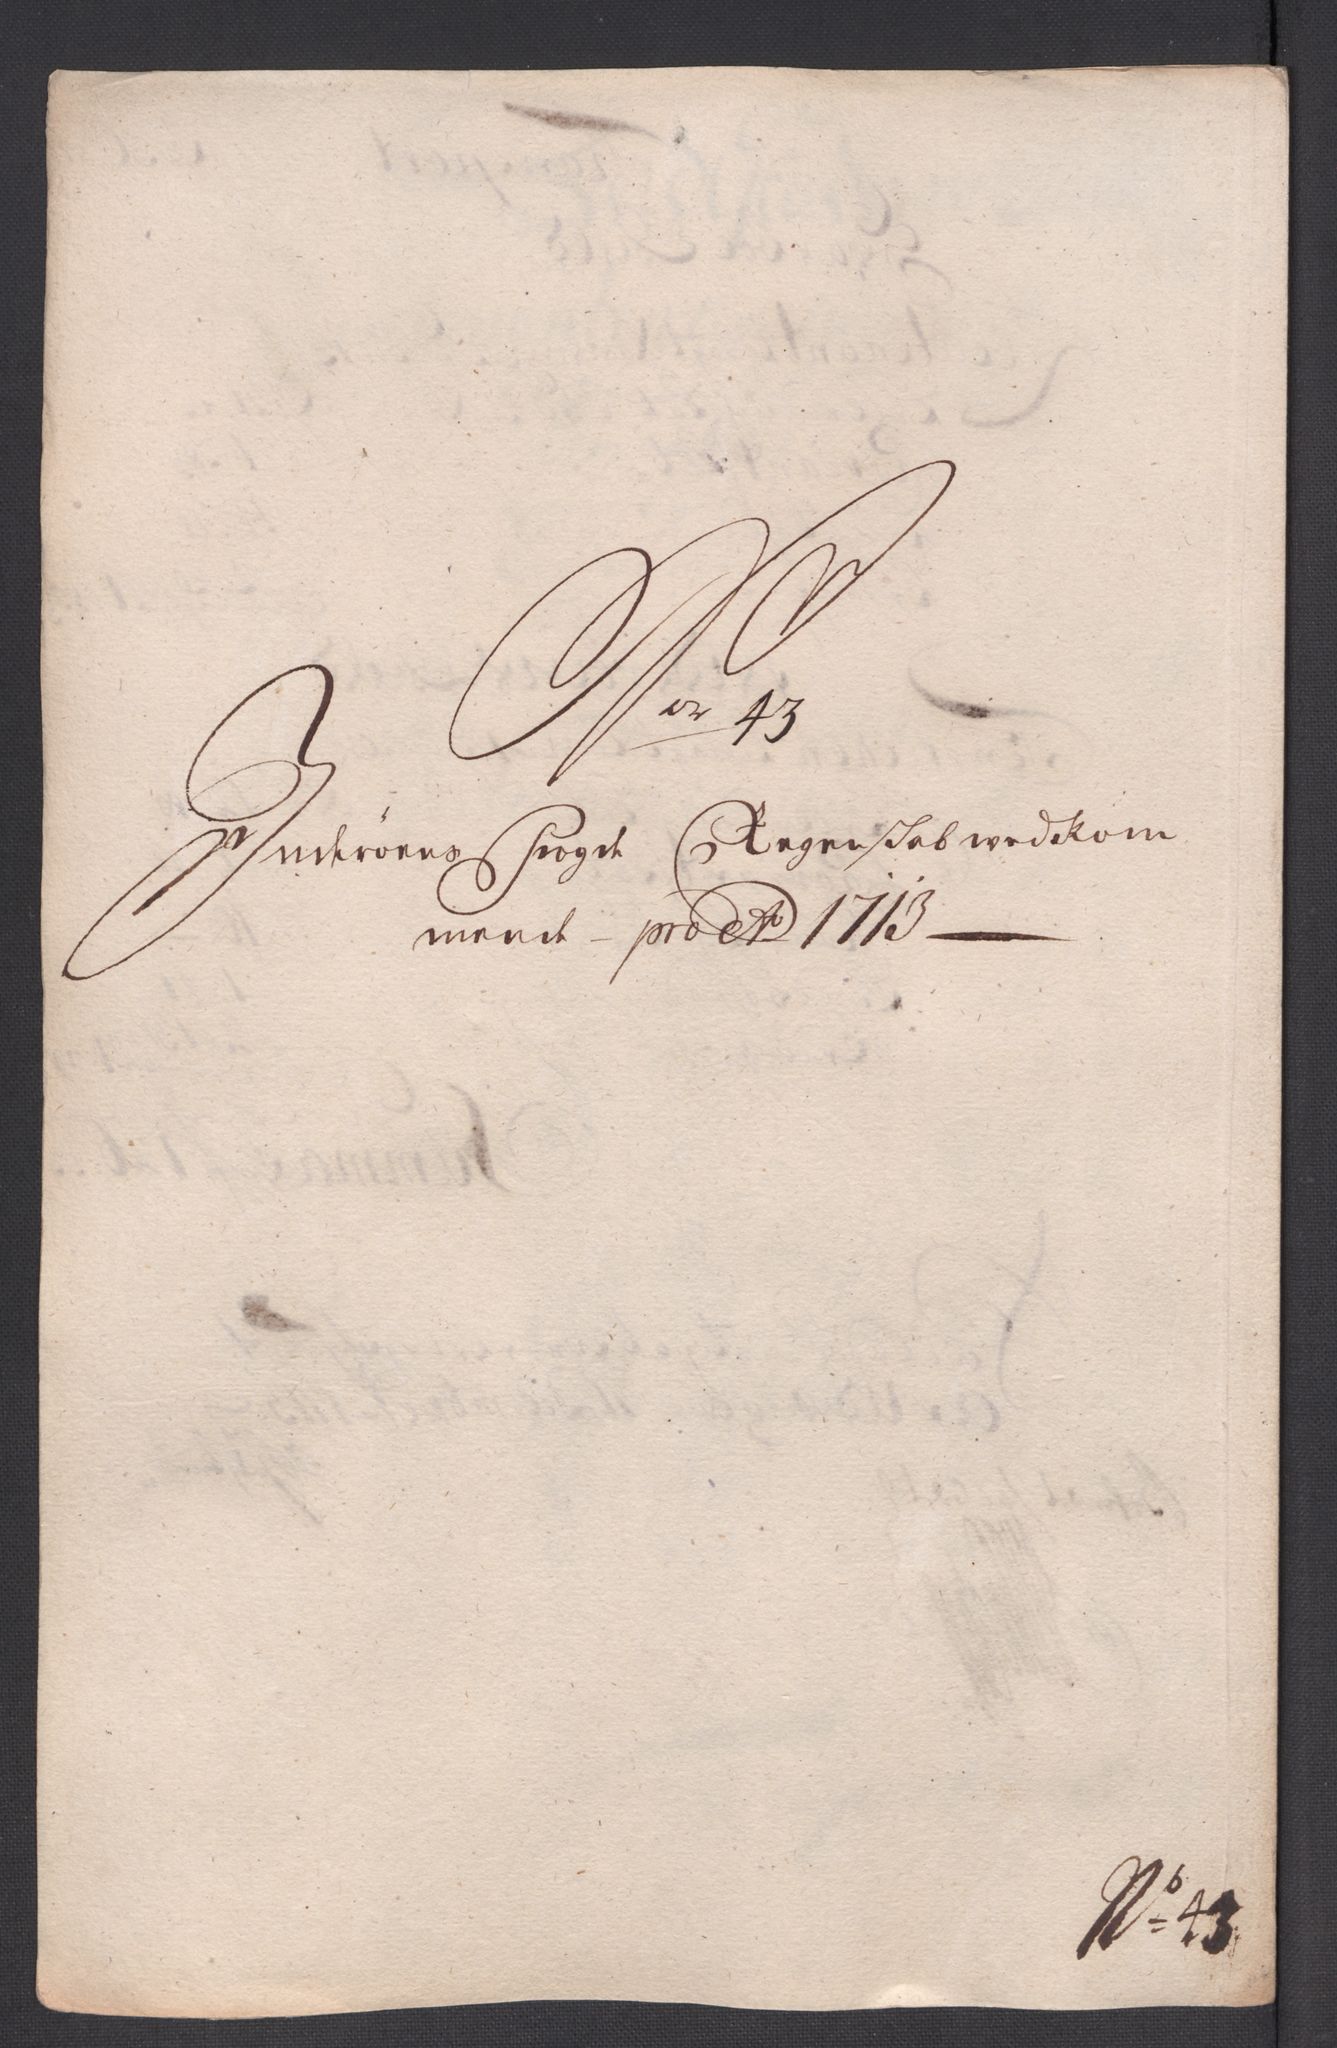 Nor 43
Inderöens Fogde Regenskab wedkom
mende - pro Ao 1713
No 43